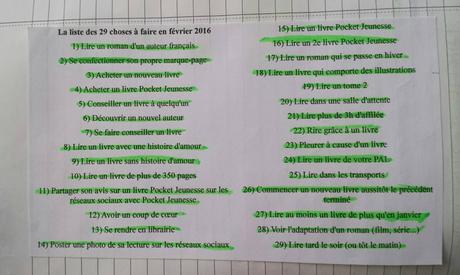 La liste des 29 choses à faire en février 2016
1) Lire un roman d'un auteur français
2) Se confectionner son propre marque-page
3) Acheter un nouveau livre
4) Acheter un livre Pocket Jeunesse
5) Conseiller un livre à quelqu'un
6) Découvrir un nouvel auteur
7) Se faire conseiller un livre
8) Lire un livre avec une histoire d'amour
9) Lire un livre sans histoire d'amour
10) Lire un livre de plus de 350 pages
11) Partager son avis sur un livre Pocket Jeunesse sur les
réseaux sociaux avec Pocket Jeunesse
12) Avoir un coup de cœur
13) Se rendre en librairie
14) Poster une photo de sa lecture sur les réseaux sociaux
15) Lire un livre Pocket Jeunesse
16) Lire un 2e livre Pocket Jeunesse
17) Lire un roman qui se passe en hiver
18) Lire un livre qui comporte des illustrations
19) Lire un tome 2
20) Lire dans une salle d'attente
21) Lire plus de 3h d'affilée
22) Rire grâce à un livre
23) Pleurer à cause d'un livre
24) Lire un livre de votre PAL
25) Lire dans les transports
26) Commencer un nouveau livre aussitôt le précédent
terminé
27) Lire au moins un livre de plus qu'en janvier
28) Voir l'adaptation d'un roman (film, série...)
29) Lire tard le soir (ou tôt le matin)